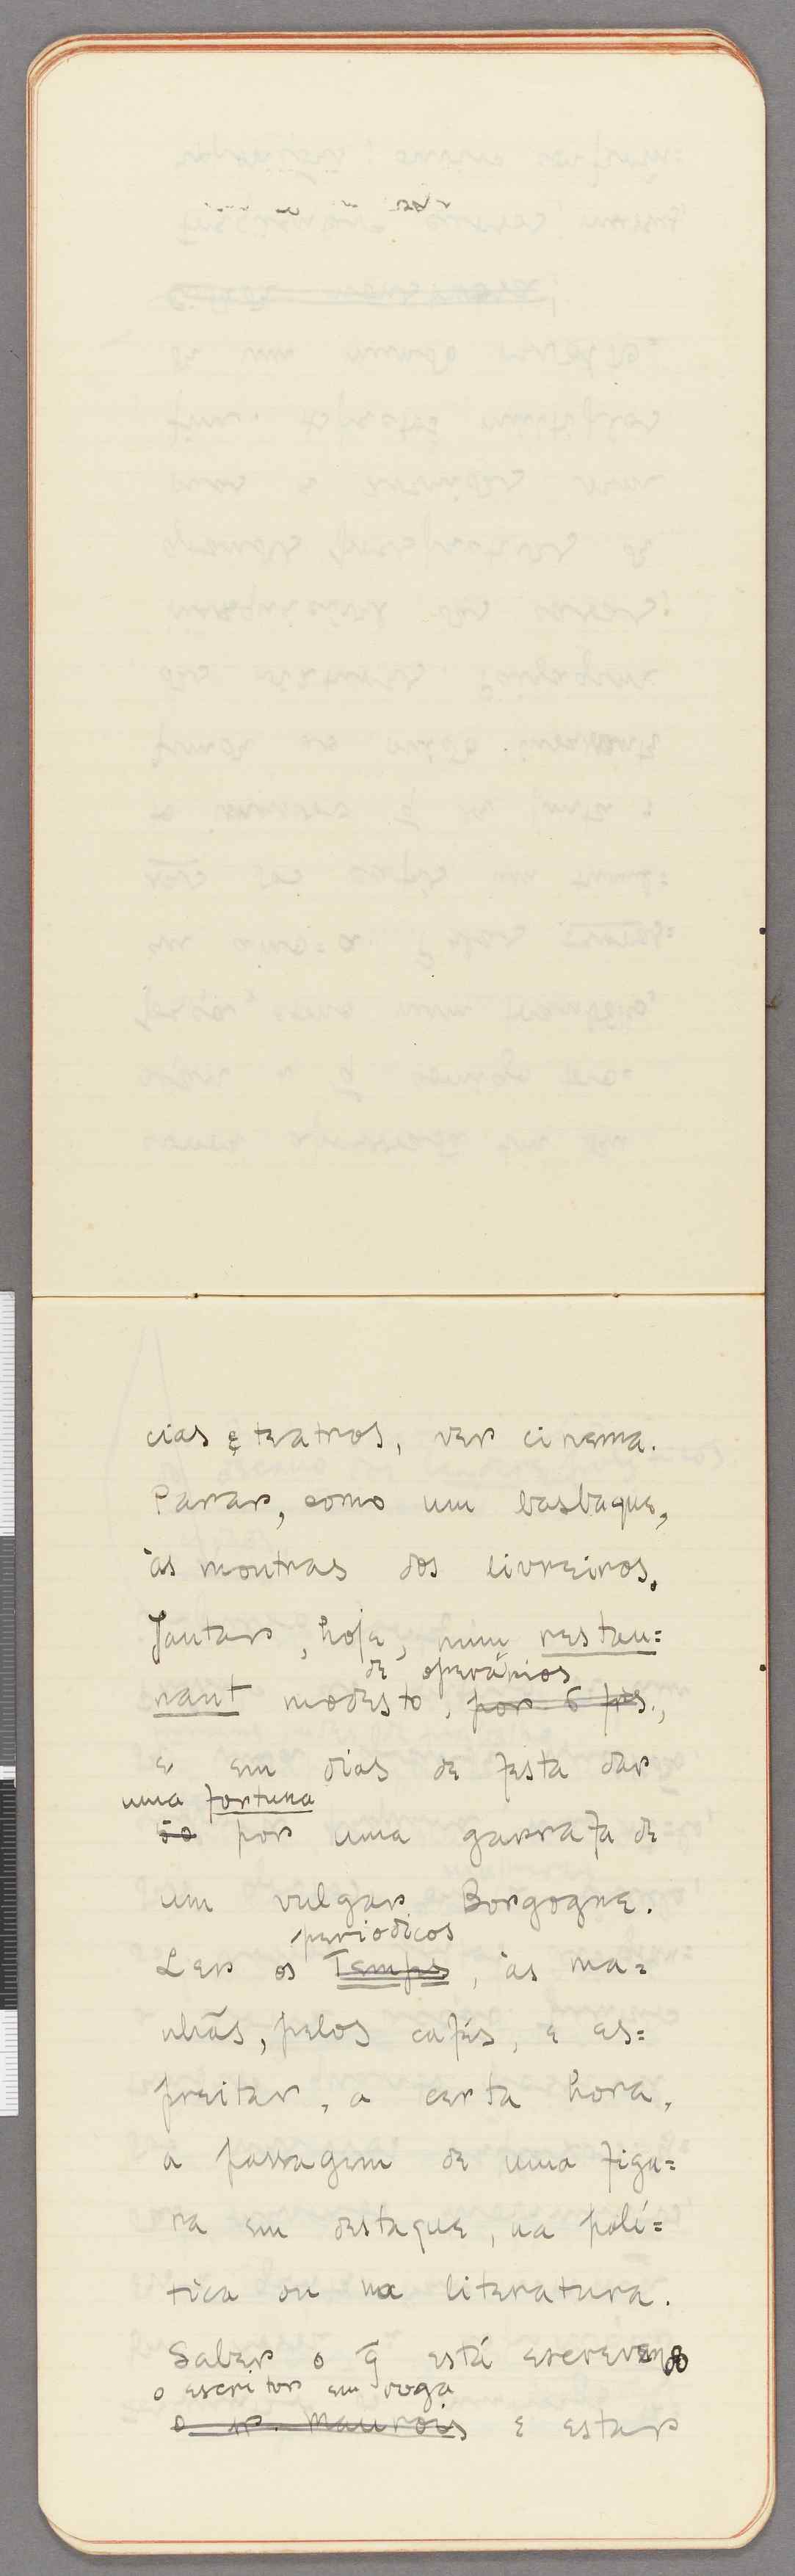 cias e teatros, ver cinema.
Parar, como um basbaque,
às montras dos livreiros.
Jantar, hoje, num restau=
de operários
rant modesto, por 6 frs.,
e em dias de festa dar
uma fortuna
50 por uma garrafa de
um vulgar Borgogne.
periodicos
Ler os Temps, às ma=
nhãs, pelos cafés, e es=
preitar, a certa hora,
a passagem de uma figu=
ra em destaque, na polí=
tica ou na literatura.
Saber o q̃ está escrevendo
o escritor em voga
o sr. Maurois e estar